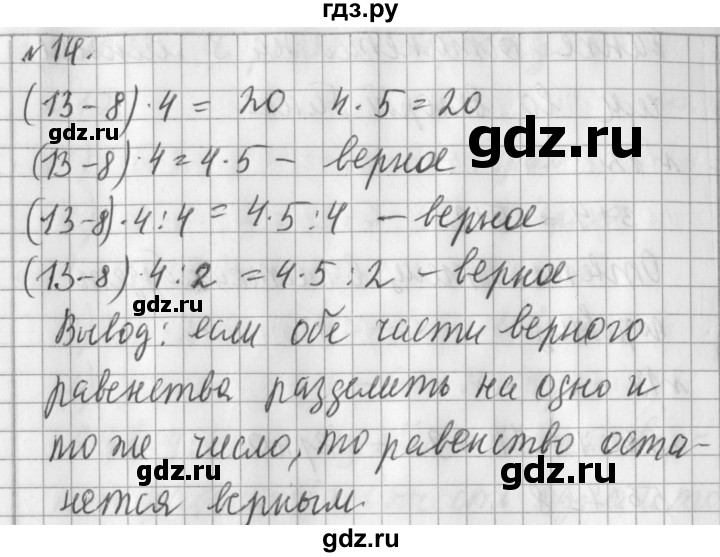 гдз.ру
№ 14.
(13-8)·4 = 20 4·5=20
gdz.ru
gdz.ru
(13-8)·4=4·5 - верное
(13-8)·4:4 = 4·5:4 - верное
(13-8)·4:2 = 4·5:2 - верное
gdz.ru
gdz.ru
Вывод: если обе части верного
равенства разделить на одно и
то же число, то равенство оста-
gdz.ru
gdz.ru
нется верным.
gdz.ru